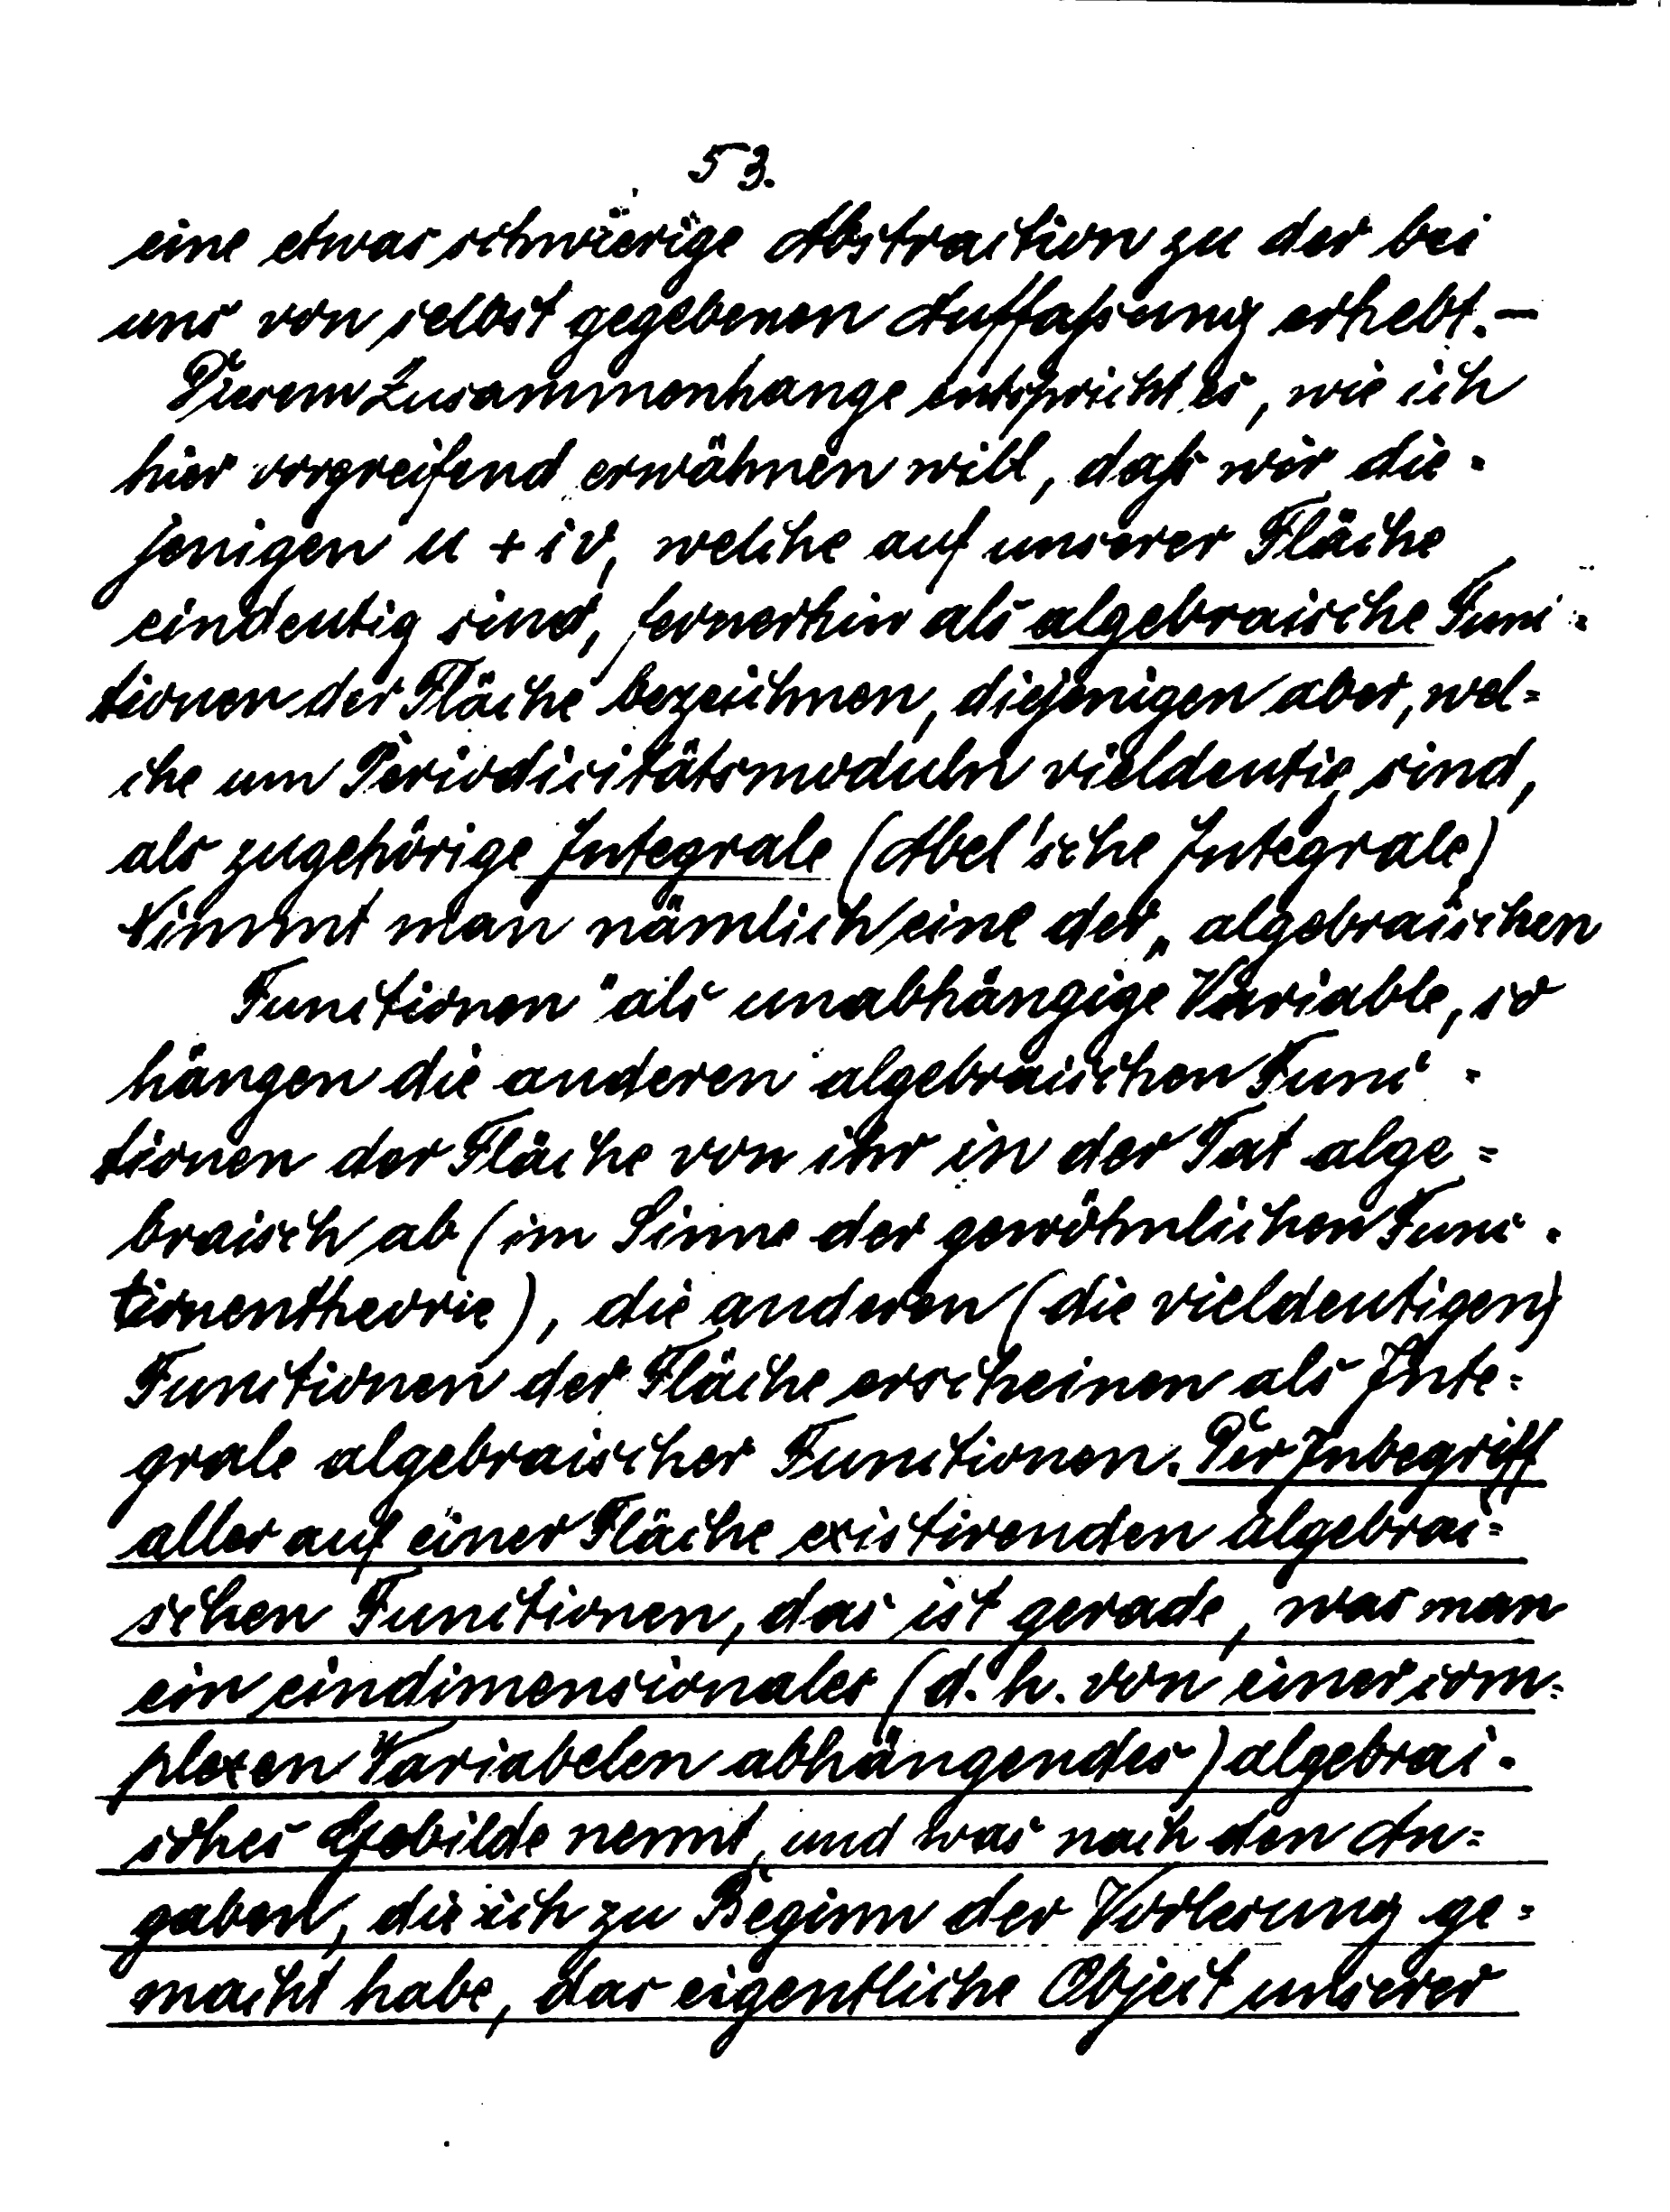 53.
eine etwas schwierige Abstraction zu der bei
uns von selbst gegebenen Auffaßung erhebt. –
Diesem Zusammenhange entspricht es, wie ich
hier vorgreifend erwähnen will, daß wir die-
jenigen u + iv, welche auf unserer Fläche
eindeutig sind, fernerhin als algebraische Func=
tionen der Fläche bezeichnen, diejenigen aber, wel=
che um Periodicitätsmoduln vieldeutig sind,
als zugehörige Integrale (Abel'sche Integrale)
Nimmt man nämlich eine der „algebraischen
Functionen" als unabhängige Variable, so
hängen die anderen algebraischen Func=
tionen der Fläche von ihr in der Tat alge=
braisch ab (im Sinne der gewöhnlichen Func-
tionentheorie), die anderen (die vieldeutigen)
Functionen der Fläche erscheinen als Inte=
grale algebraischer Functionen. Der Inbegriff
aller auf einer Fläche existirenden algebrai=
schen Functionen, das ist gerade, was man
ein eindimensionales (d.h. von einer com=
plexen Variabelen abhängendes) algebrai-
sches Gebilde nennt, und was nach den An=
gaben, die ich zu Beginn der Vorlesung ge=
macht habe, das eigentliche Object unserer